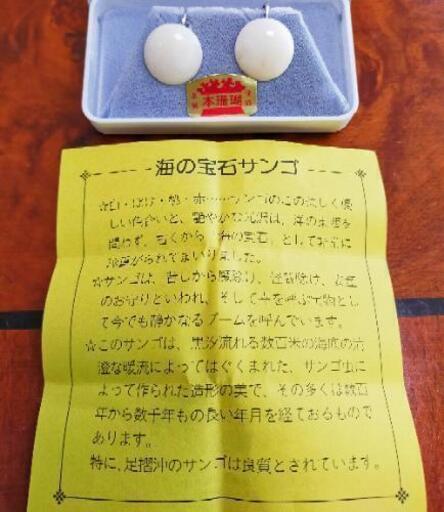 本珊瑚
海の宝石サンゴ
☆白・ぼけ・桃・赤……サンゴのこの美しく優
しい色合いと、艶やかな光沢は、洋の東西を
問わず、古くから「海の宝石」として
愛されてまいりました。
☆サンゴは、昔しから魔除け、怪我除け、安産
のお守りといわれ、そして幸を呼ぶ宝物とし
て今でも静かなるブームを呼んでいます。
☆このサンゴは、黒汐流れる数百米の海底の清
澄な暖流によってはぐくまれた、サンゴ虫に
よって作られた造形の美で、その多くは数百
年から数千年もの長い年月を経ておるもので
あります。
特に、足摺沖のサンゴは良質とされています。